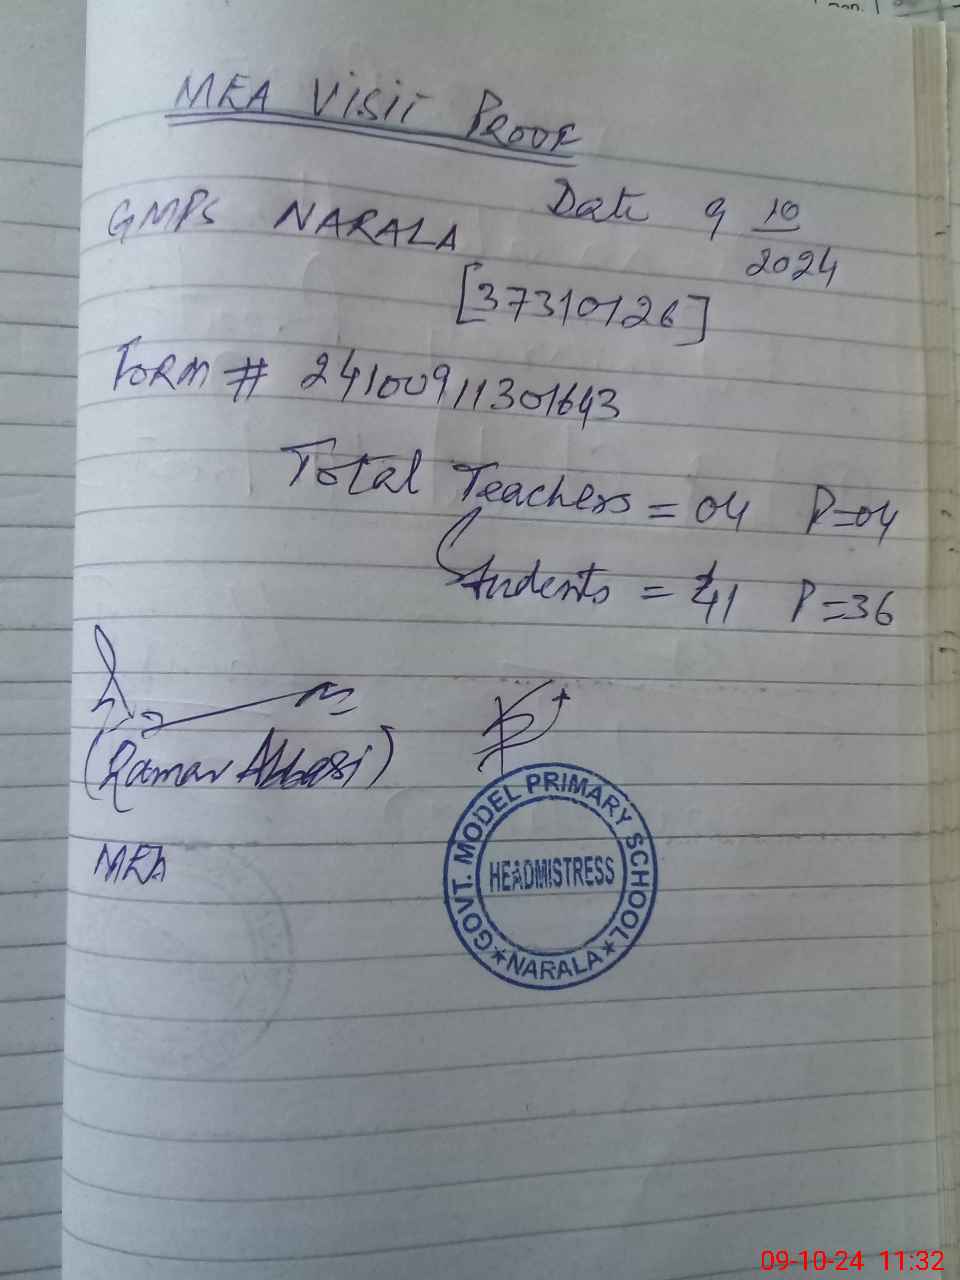 MEA Visit Proof
Date 9 10/2024
GMPS NARALA
[37310126]
Form # 24100911301643
Total Teachers = 04 P=04
Students = 41 P=36
Abbasi)
MEA
GOVT. MODEL PRIMARY SCHOOL
HEADMISTRESS
★ NARALA ★
09-10-24 11:32